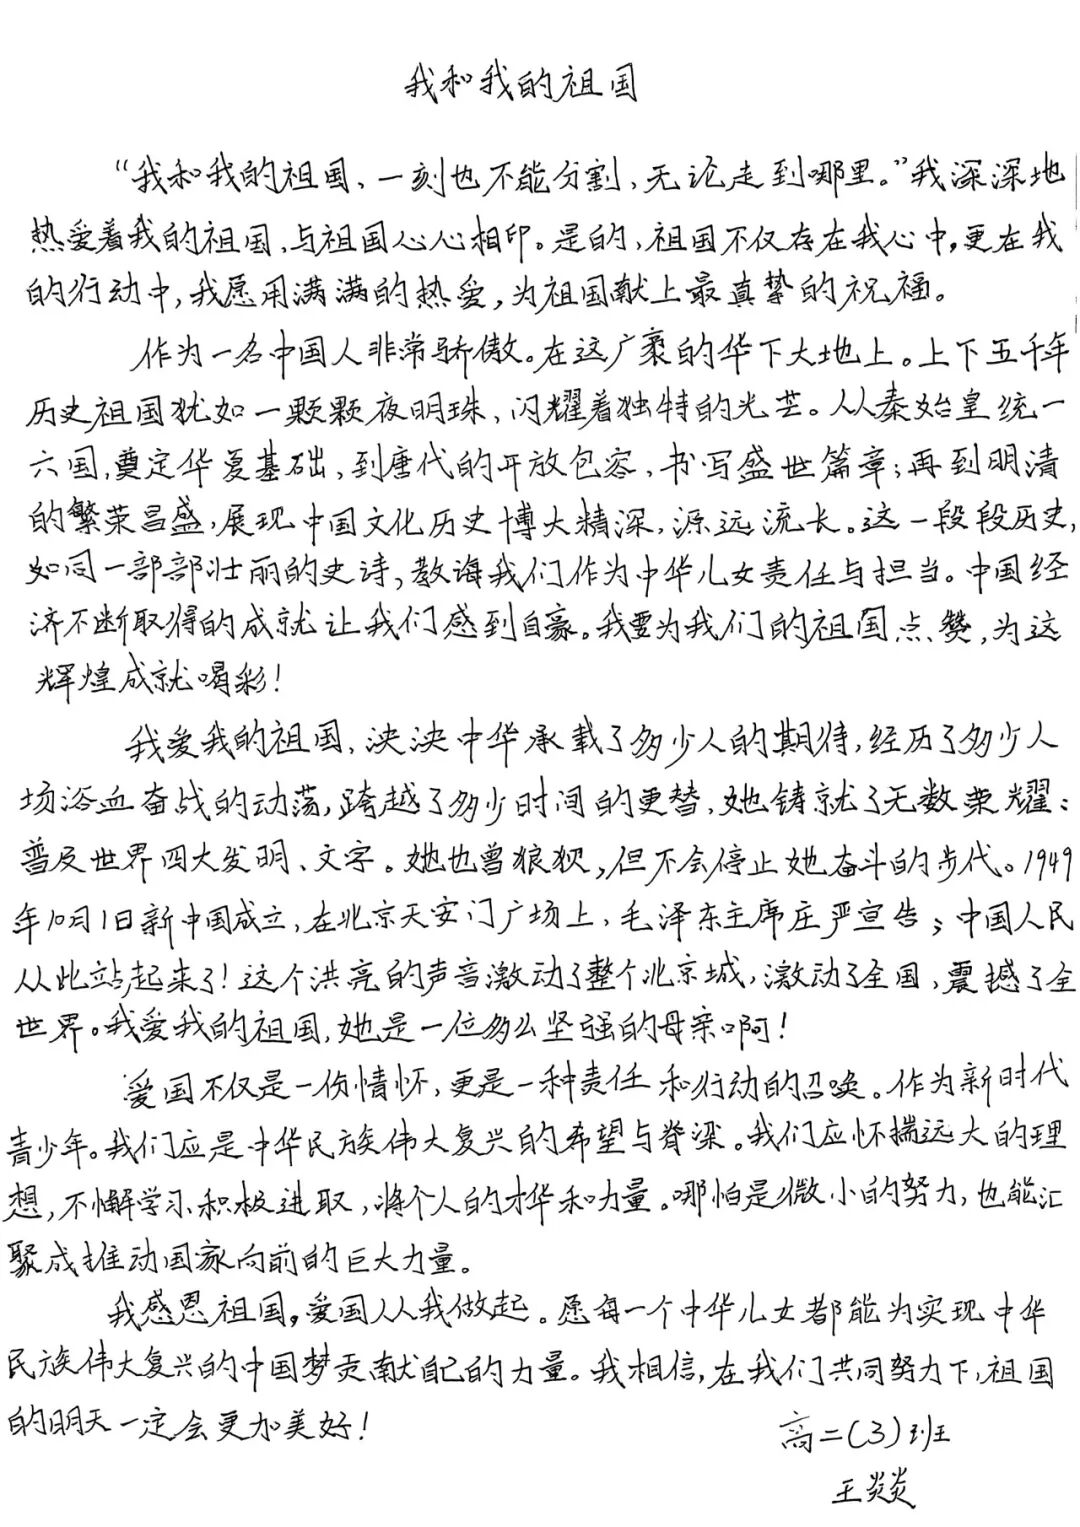 我和我的祖国
“我和我的祖国、一刻也不能分割,无论走到哪里。”我深深地
热爱着我的祖国,与祖国心心相印。是的,祖国不仅存在我心中,更在我
的行动中,我愿用满满的热爱,为祖国献上最真挚的祝福。
作为一名中国人非常骄傲。在这广袤的华下大地上。上下五千年
历史祖国犹如一颗颗夜明珠,闪耀着独特的光芒。从秦始皇统一
六国,奠定华夏基础,到唐代的开放包容,书写盛世篇章;再到明清
的繁荣昌盛,展现中国文化历史博大精深,源远流长。这一段段历史,
如同一部部壮丽的史诗,教诲我们作为中华儿女责任与担当。中国经
济不断取得的成就让我们感到自豪。我要为我们的祖国点赞,为这
辉煌成就喝彩!
我爱我的祖国,泱泱中华承载了多少人的期待,经历了多少人
场浴血奋战的动荡,跨越了多少时间的更替,她铸就了无数荣耀:
普及世界四大发明、文字。她也曾狼狈,但不会停止她奋斗的步代。1949
年10月1日新中国成立,在北京天安门广场上,毛泽东主席庄严宣告;中国人民
从此站起来了!这个洪亮的声音激动了整个北京城,激动了全国,震撼了全
世界。我爱我的祖国,她是一位多么坚强的母亲啊!
爱国不仅是一份情怀,更是一种责任和行动的召唤。作为新时代
青少年。我们应是中华民族伟大复兴的希望与脊梁。我们应怀揣远大的理
想,不懈学习、积极进取,将个人的才华和力量。哪怕是微小的努力,也能汇
聚成推动国家向前的巨大力量。
我感恩祖国,爱国从我做起。愿每一个中华儿女都能为实现中华
民族伟大复兴的中国梦贡献自己的力量。我相信,在我们共同努力下,祖国
的明天一定会更加美好!
高二(3)班
王焱焱